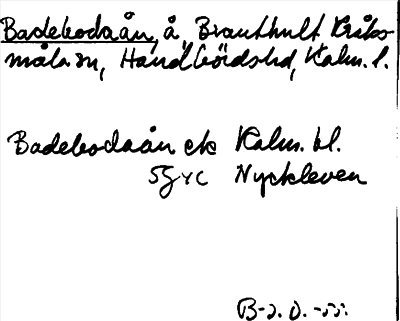 Badebodaån, å, Branthult Kriks-
måla sn, Handbördshd, Kalm. l.
Badebodaån ek Kalm. bl.
5G YC Nyckleven
B-s. O. -55.